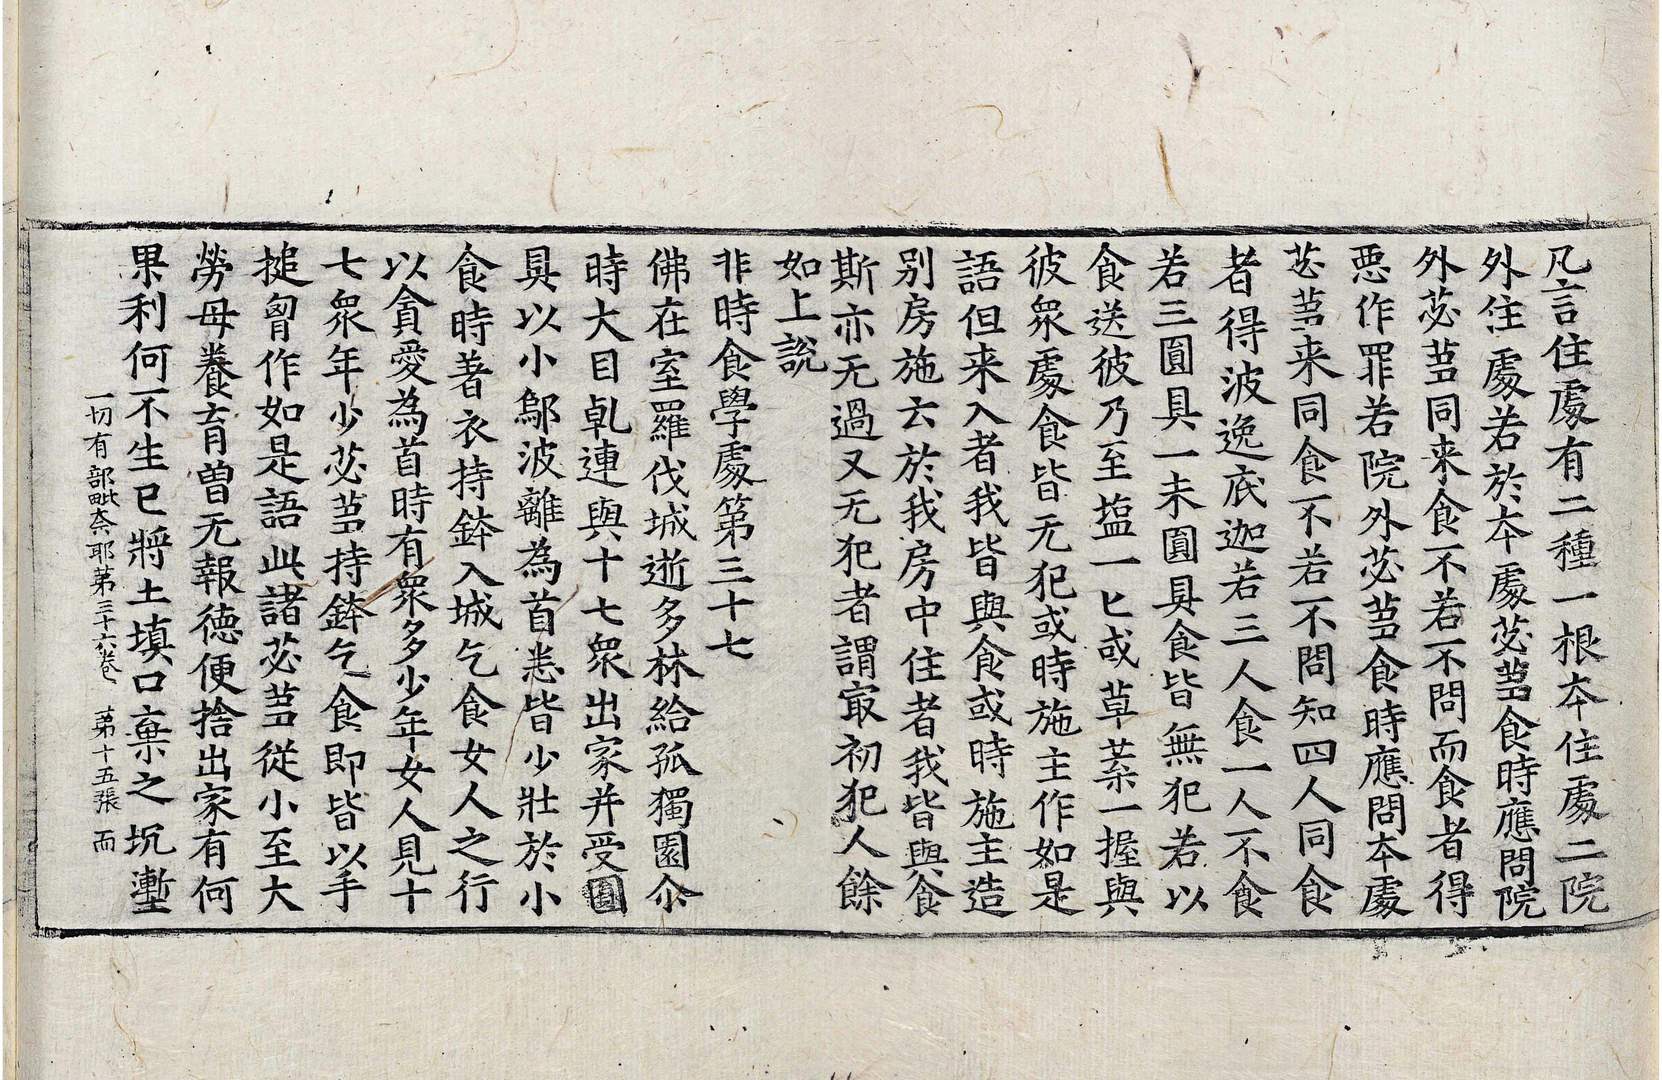 凡言住處有二種一根夲住處二院
外住處若於夲處苾蒭食時應問院
外苾蒭同来食不若不問而食者得
惡作罪若院外苾蒭食時應問夲處
苾蒭来同食不若不問知四人同食
者得波逸底迦若三人食一人不食
若三圓具一未圓具食皆無犯若以
食送彼乃至塩一匕或草菜一握與
彼衆處食皆无犯或時施主作如是
語但来入者我皆與食或時施主造
别房施云於我房中住者我皆與食
斯亦无過又无犯者謂㝡初犯人餘
如上說
非時食學處第三十七
佛在室羅伐城逝多林給孤獨園尒
時大目乹連與十七衆出家并受圓
具以小鄔波離為首悉皆少壯於小
食時著衣持鉢入城乞食女人之行
以貪愛為首時有衆多少年女人見十
七衆年少苾蒭持鉢乞食即皆以手
搥胷作如是語此諸苾蒭從小至大
勞母養育曽无報德便捨出家有何
果利何不生已將土填口棄之坑壍
一切有部毗柰耶第三十六卷 第十五張 而